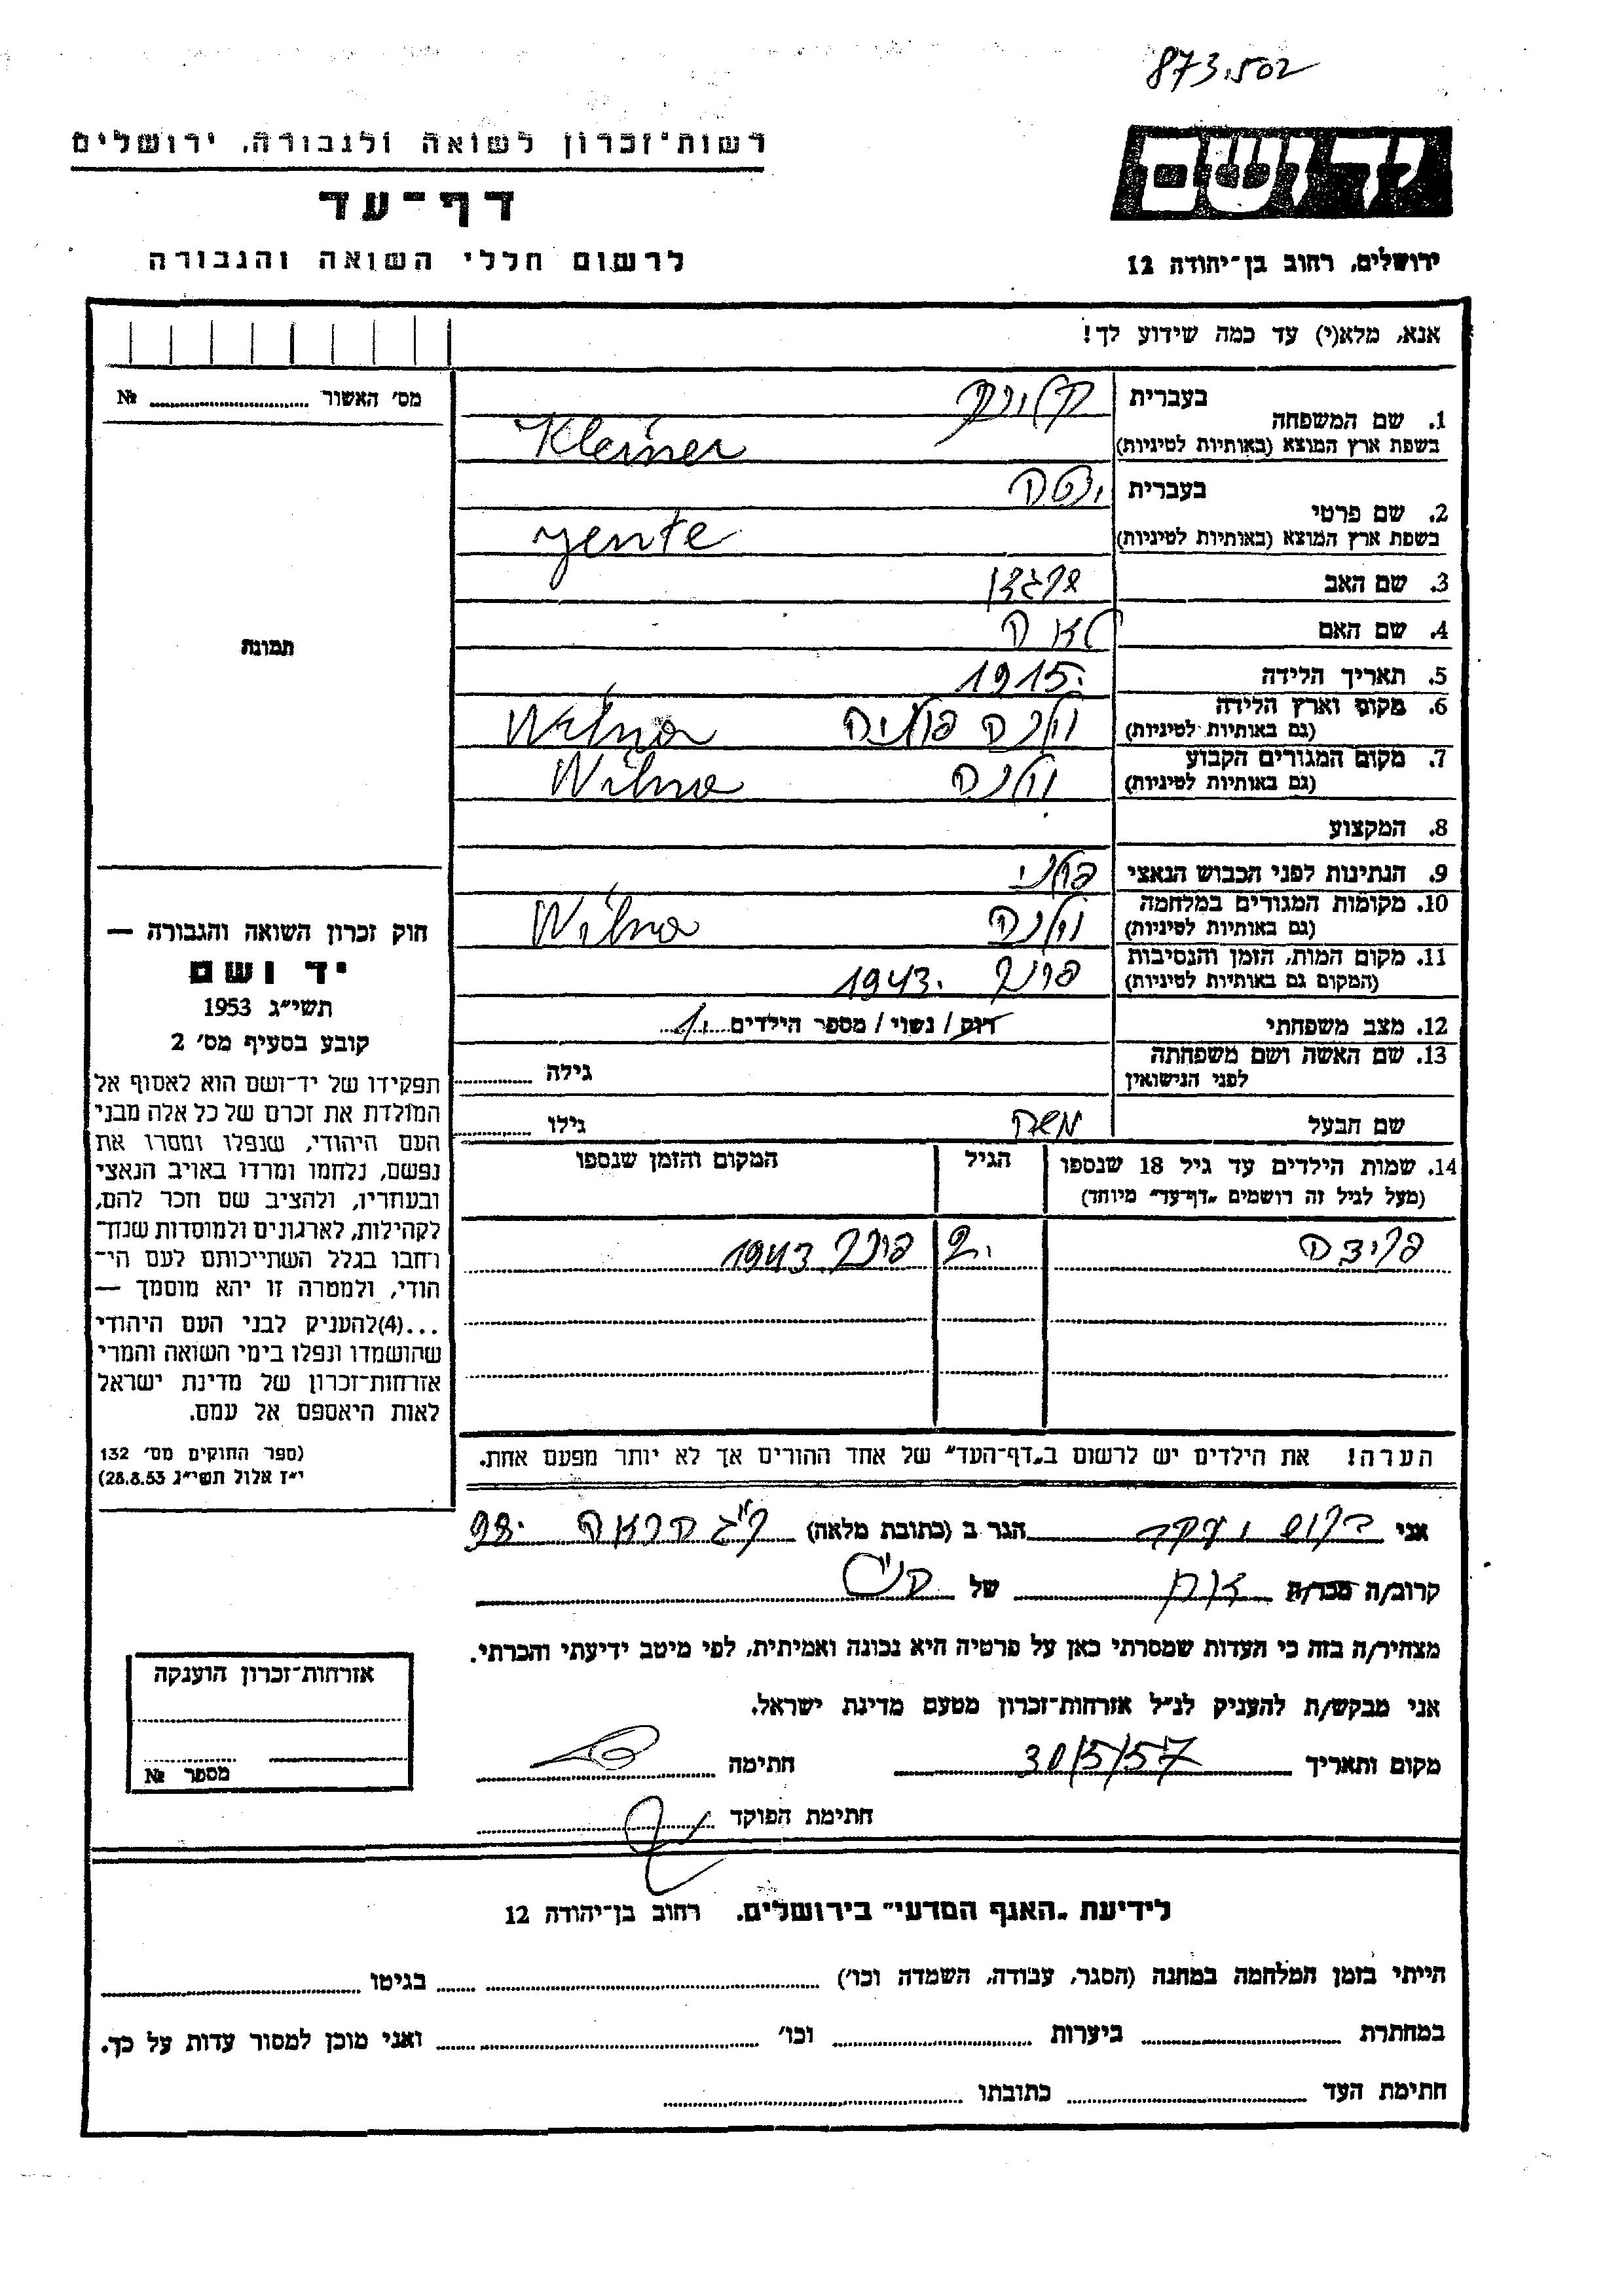 873.502
רשות־זכרון לשואה ולגבורה, ירושלים
יד ושם
דף־עד
לרשום חללי השואה והגבורה
ירושלים, רחוב בן־יהודה 12
אנא, מלא(י) עד כמה שידוע לך!
מס׳ האשור № 
1. שם המשפחה
בעברית
בשפת ארץ המוצא (באותיות לטיניות) Kleiner
2. שם פרטי
בעברית ינטה
בשפת ארץ המוצא (באותיות לטיניות) yente
3. שם האב
4. שם האם לאה
5. תאריך הלידה 1915.
6. מקום וארץ הלידה וילנה פולניה Wilno
(גם באותיות לטיניות)
7. מקום המגורים הקבוע וילנה Wilno
(גם באותיות לטיניות)
8. המקצוע
9. הנתינות לפני הכבוש הנאצי פולני
10. מקומות המגורים במלחמה וילנה Wilno
(גם באותיות לטיניות)
11. מקום המות, הזמן והנסיבות פונר 1943.
(המקום גם באותיות לטיניות)
12. מצב משפחתי רוק / נשוי / מספר הילדים 1.
13. שם האשה ושם משפחתה
לפני הנישואין
גילה
שם הבעל משה גילו
14. שמות הילדים עד גיל 18 שנספו
(מעל לגיל זה רושמים „דף־עד״ מיוחד)
הגיל
המקום והזמן שנספו
פונר 1943
הערה! את הילדים יש לרשום ב„דף־העד״ של אחד ההורים אך לא יותר מפעם אחת.
תמונה
חוק זכרון השואה והגבורה —
יד ושם
תשי״ג 1953
קובע בסעיף מס׳ 2
תפקידו של יד־ושם הוא לאסוף אל
המולדת את זכרם של כל אלה מבני
העם היהודי, שנפלו ומסרו את
נפשם, נלחמו ומרדו באויב הנאצי
ובעוזריו, ולהציב שם וזכר להם,
לקהילות, לארגונים ולמוסדות שנח־
רבו בגלל השתייכותם לעם הי־
הודי, ולמטרה זו יהא מוסמך —
...(4)להעניק לבני העם היהודי
שהושמדו ונפלו בימי השואה והמרי
אזרחות־זכרון של מדינת ישראל
לאות היאספם אל עמם.
(ספר החוקים מס׳ 132
י״ז אלול תשי״ג 28.8.53)
אני הגר ב (כתובת מלאה)
קרוב/ה מכר/ה של
מצהיר/ה בזה כי העדות שמסרתי כאן על פרטיה היא נכונה ואמיתית, לפי מיטב ידיעתי והכרתי.
אני מבקש/ת להעניק לנ״ל אזרחות־זכרון מטעם מדינת ישראל.
מקום ותאריך 30/5/57 חתימה
חתימת הפוקד
אזרחות־זכרון הוענקה
מספר №
לידיעת „האגף המדעי״ בירושלים. רחוב בן־יהודה 12
הייתי בזמן המלחמה במחנה (הסגר, עבודה, השמדה וכו׳) בגיטו
במחתרת ביערות וכו׳ ואני מוכן למסור עדות על כך.
חתימת העד כתובתו